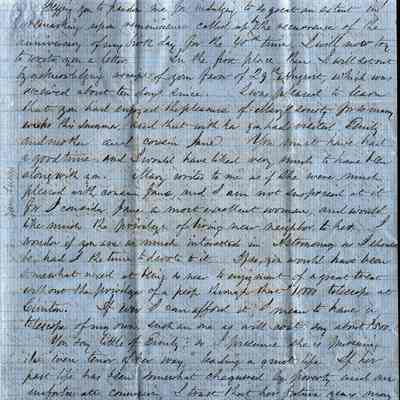 Begging you to pardon me for indulging to so great an extent in
reminiscences called up by the occurrence of the
anniversary of my birth day for the 40th time, I will now try
to write you a letter. In the first place then I will set out
by acknowledging receipt of your favor of 29 August, which was
received about ten days since. I was pleased to learn
that you had enjoyed the pleasure of Mary's society for so many
weeks this summer, and that with her you had visited Emily
and mother and cousin Jane. You must have had
a good time, and I would have liked very much to have been
along with you. Mary writes to me as if she were much
pleased with cousin Jane, and I am not surprised at it
for I consider Jane a most excellent woman, and would
like much the privilege of being near neighbor to her. I
wonder if you are as much interested in Astronomy as I should
be had I the time to devote to it. If so, you would have been
somewhat vexed at being so near to enjoyment of a great treat
without the privilege of a peep through that $1000 telescope at
Clinton. If ever I can afford it, I mean to have a
telescope of my own, such an one as will cost say about $500.
You say little of Emily; so I presume she is pursuing
the "even tenor of her way" leading a quiet life. If her
past life has been somewhat chequered by poverty and an
unfortunate I trust that her future years may